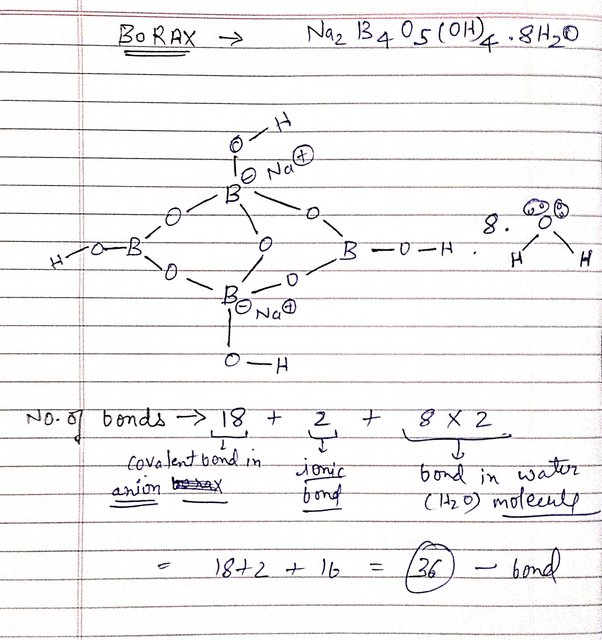 BORAX → Na2 B4 O5 (OH)4 . 8H2O
O – H
⊖ Na⊕
B
O O
H – O – B O B – O – H . 8. O
O O H H
B⊖ Na⊕
O – H
No. of bonds → 18 + 2 + 8 X 2
covalent bond in anion
ionic bond
bond in water (H2O) molecule
= 18+2 + 16 = 36 – bond